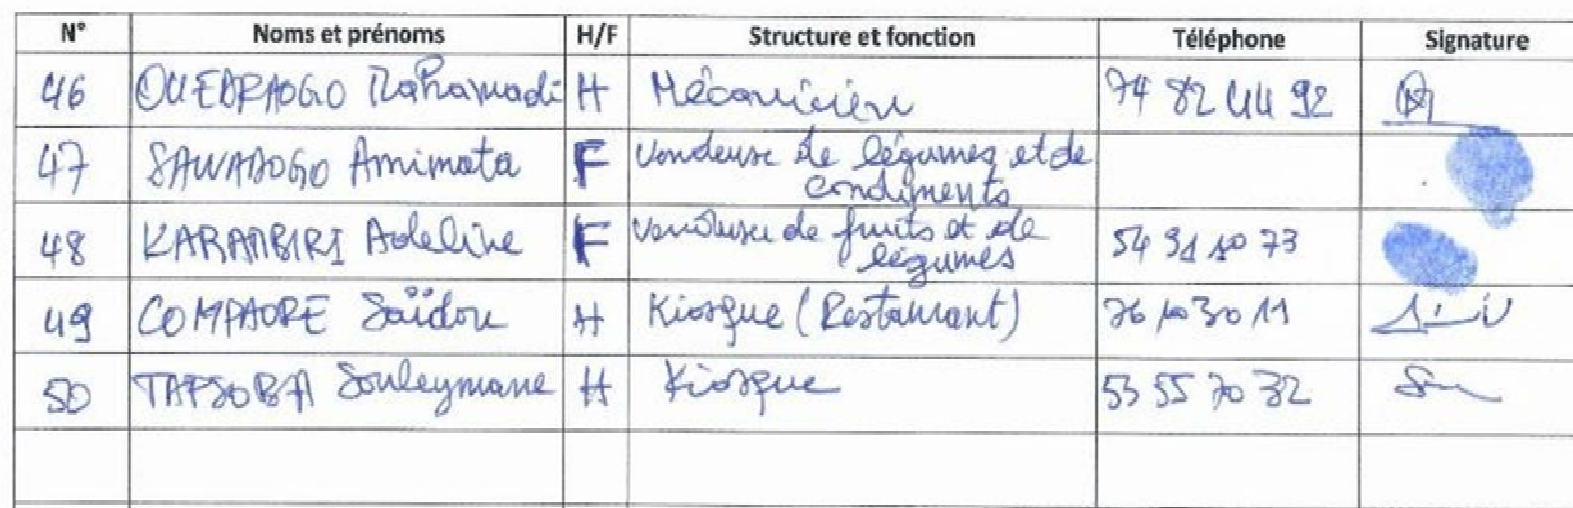 N° Noms et prénoms H/F Structure et fonction Téléphone Signature
46 OUEDRAOGO Rahamadi H Mécanicien 74 82 44 92
47 SAWADOGO Amimata F Vendeuse de légumes et de
condiments
48 KARAMBIRI Adeline F Vendeuse de fruits et de 54 91 10 73
légumes
49 COMPAORE Saïdou H Kiosque (Restaurant) 76 10 30 11
50 TAPSOBA Souleymane H Kiosque 53 55 70 32